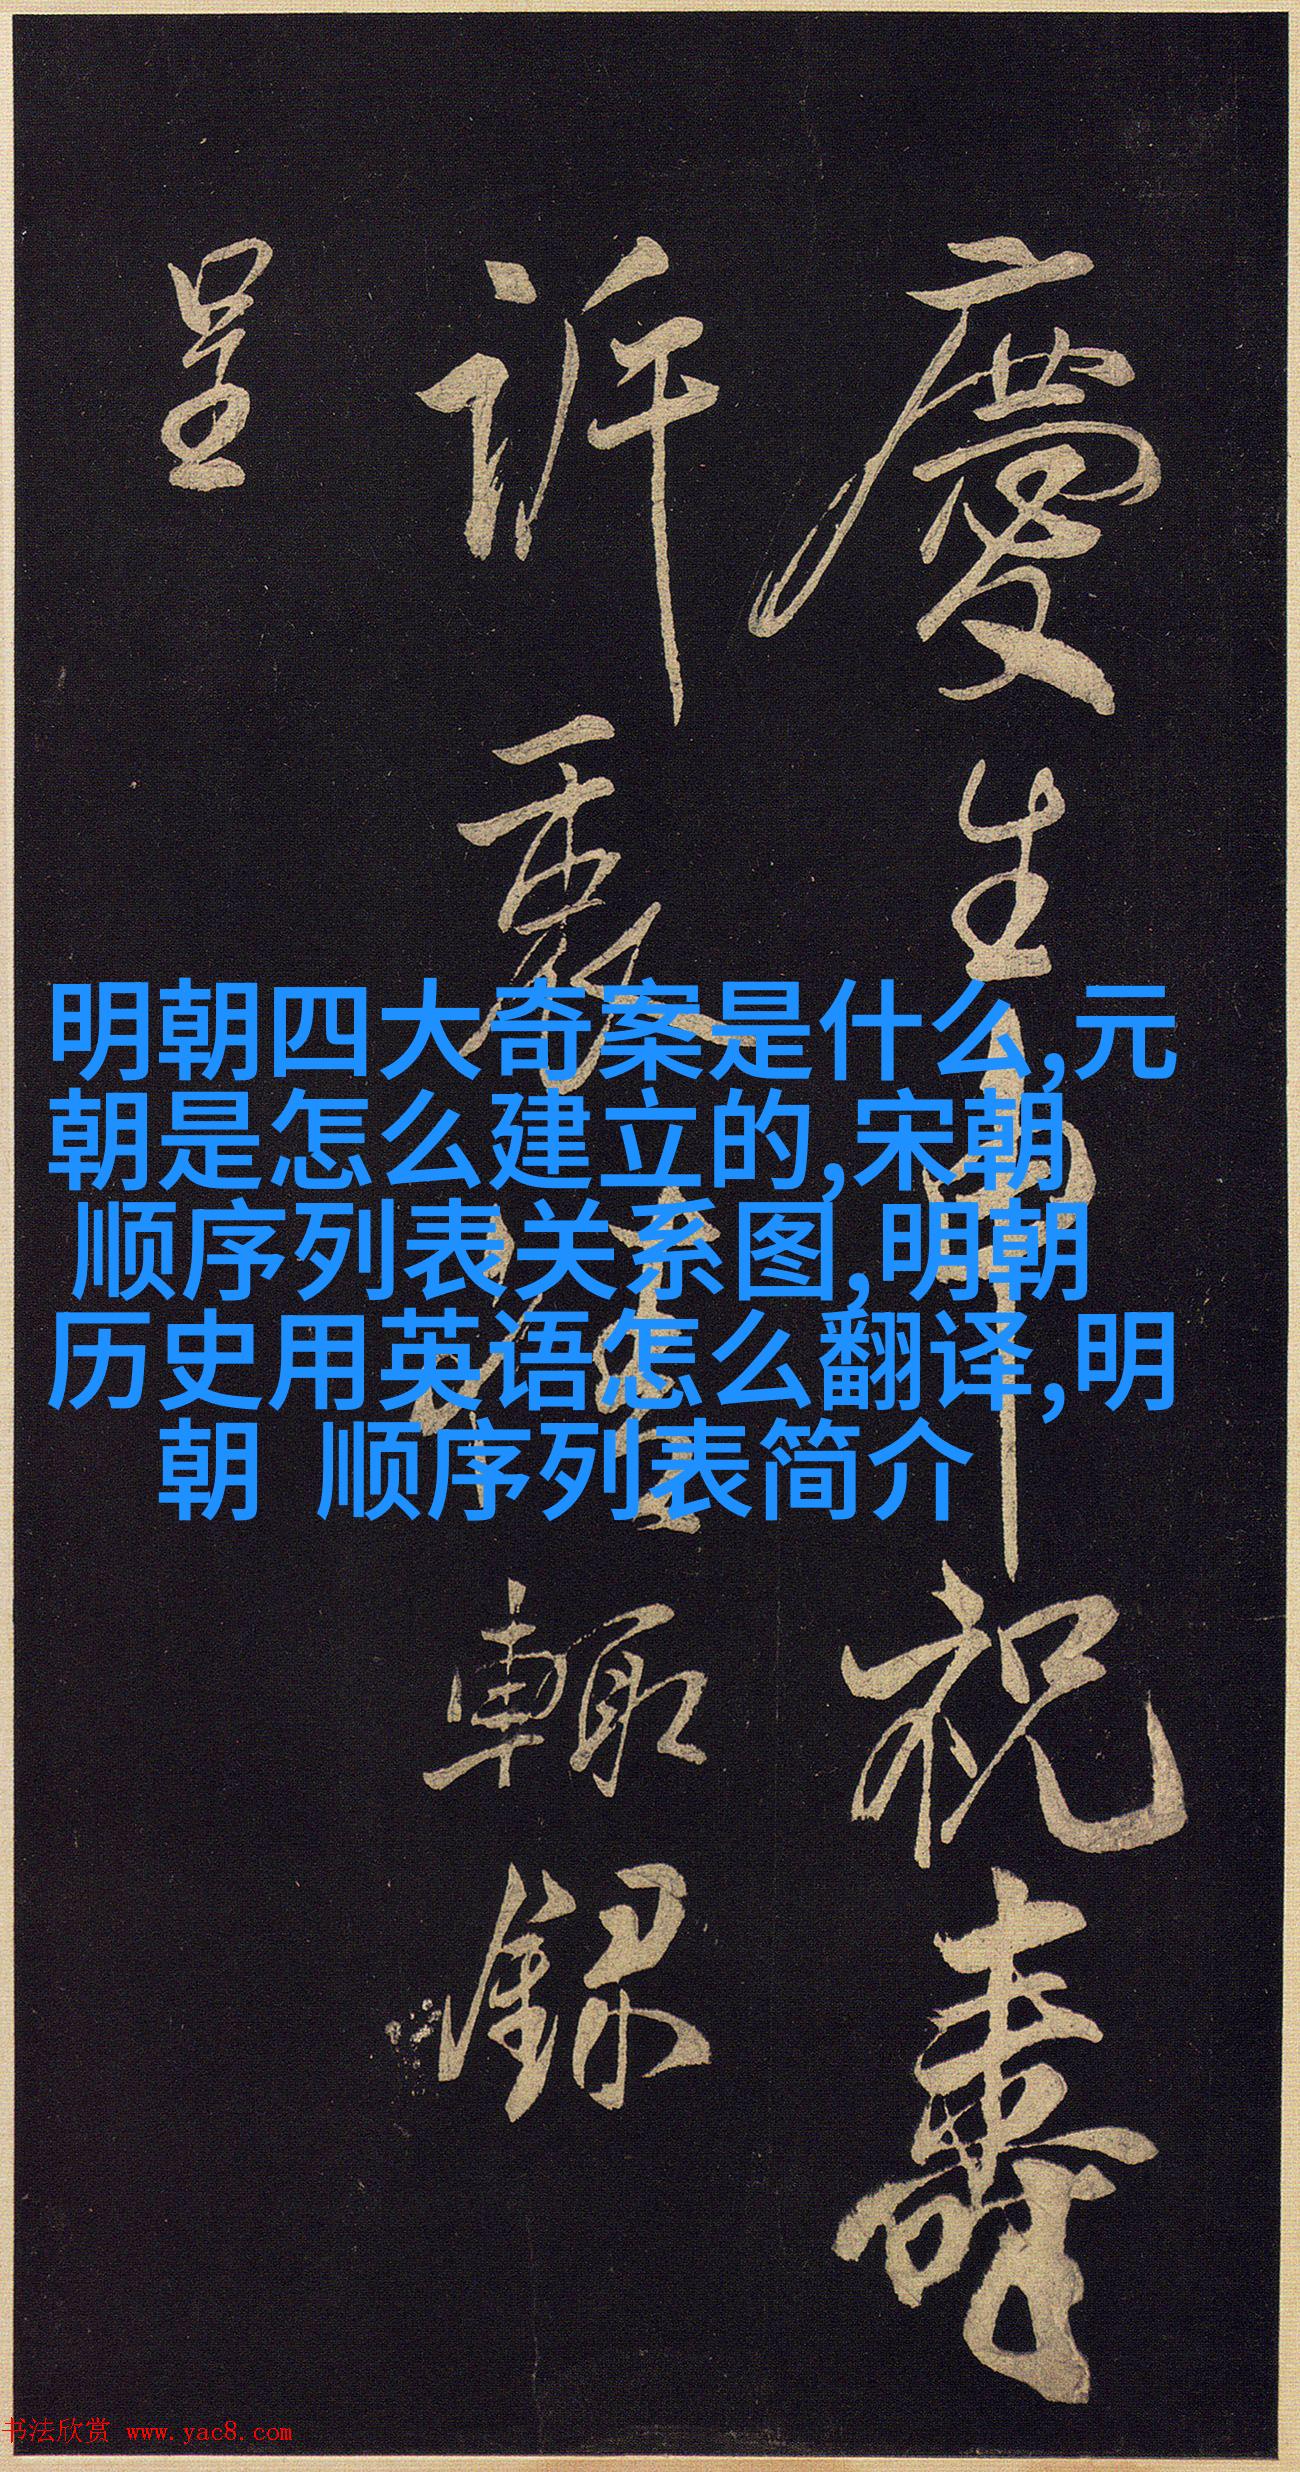 慶生申祝壽
訢裹
輙録
呈
明朝四大奇案是什么,元
朝是怎么建立的,宋朝
顺序列表关系图,明朝
历史用英语怎么翻译,明
朝 顺序列表简介
书法欣赏 www.yac8.com